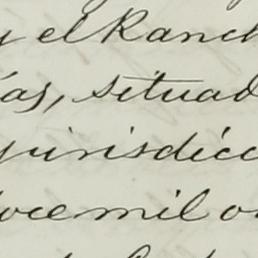 y el Ranch
ías, situad
jurisdicc
doce mil o